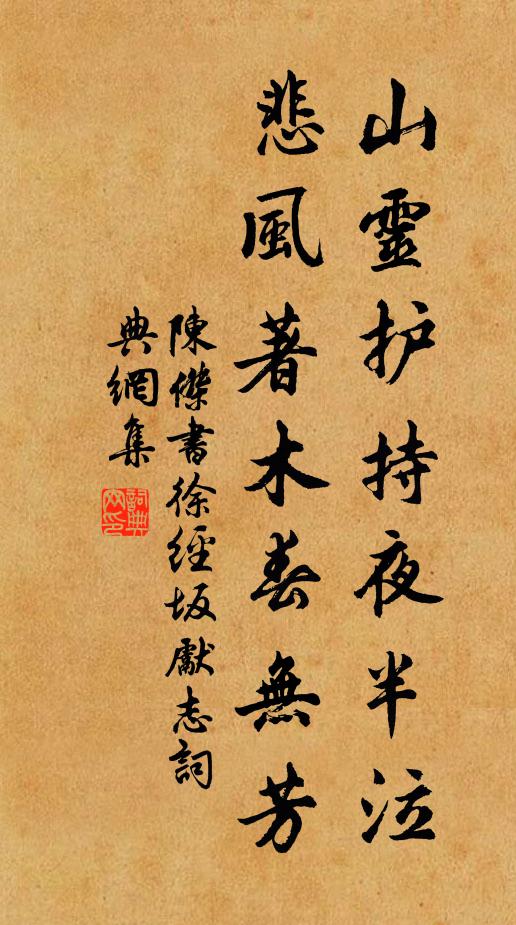 山靈护持夜半泣
悲風著木春無芳
陳傑書徐經坂獻志詞
典網集
詞典网印